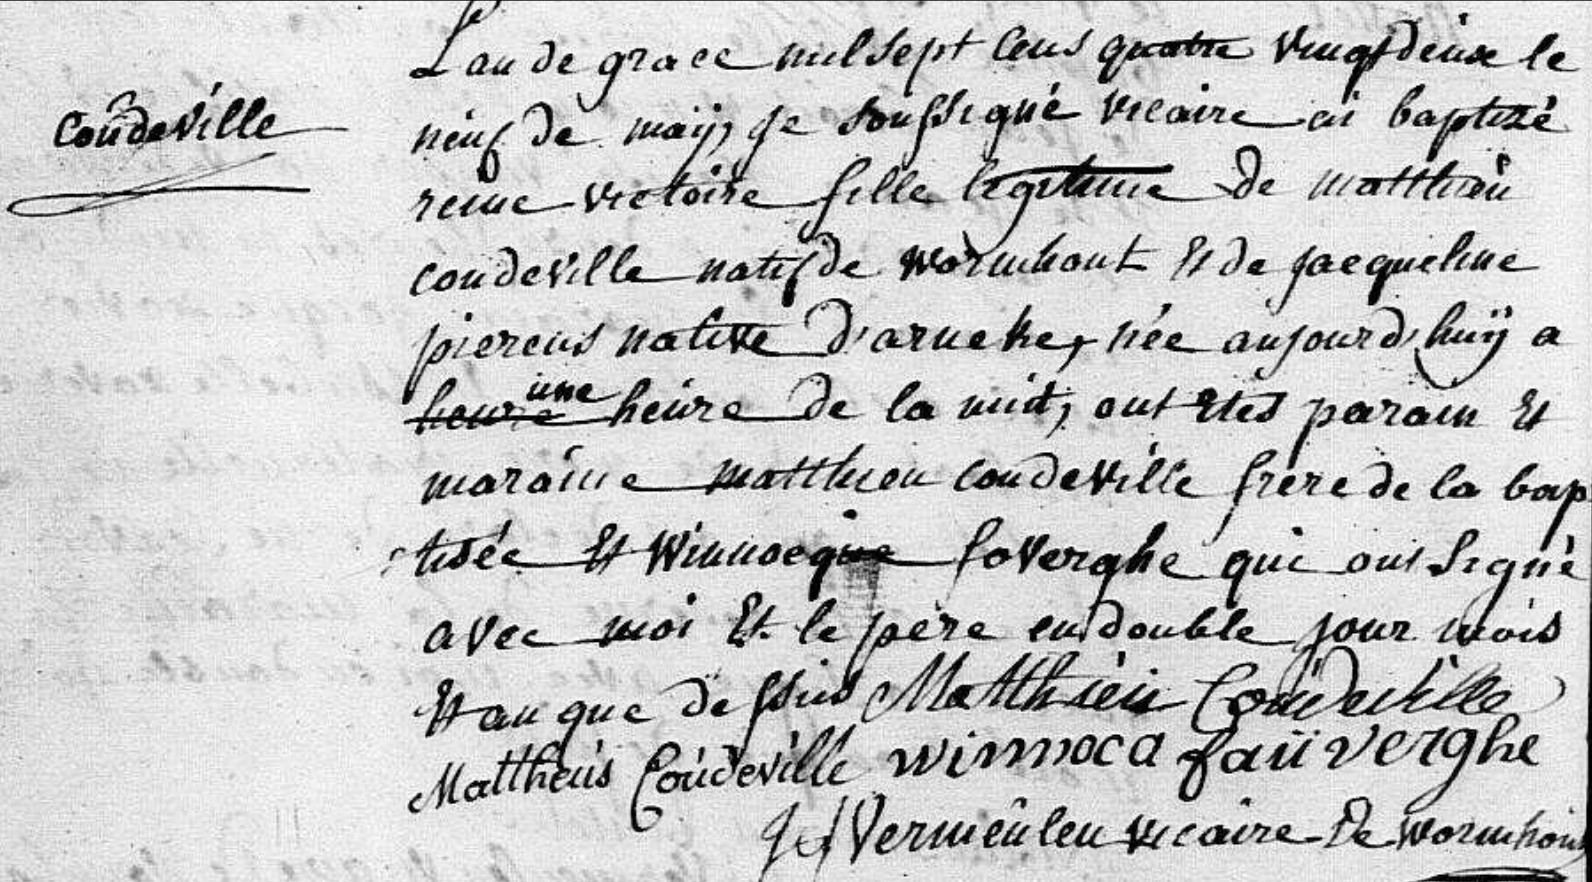 Coudeville
L'an de grace mil sept cens quatre vingt deux le
neuf de maÿ, je soussigné vicaire ai baptizé
reine victoire fille legitime de matthieu
coudeville natif de wormhout Et de jacqueline
pierens native d'arneke, née aujourd'huÿ a
heure une heure de la nuit, ont Etés parain Et
maraine matthieu coudeville frere de la bap
tisée Et Winnocque foverghe qui ont signé
avec moi Et le père en double jour mois
Et an que dessus Matthieu Coudeville
Mattheus Coudeville winnoca fauverghe
Vermeulen vicaire De wormhout